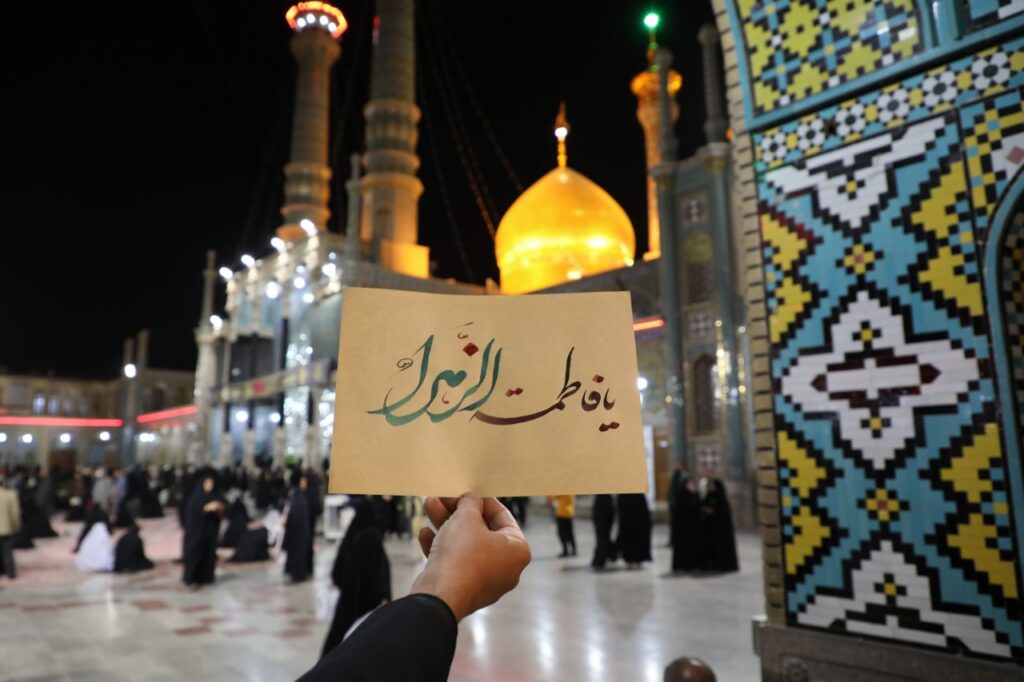 یا فاطمة الزهرا